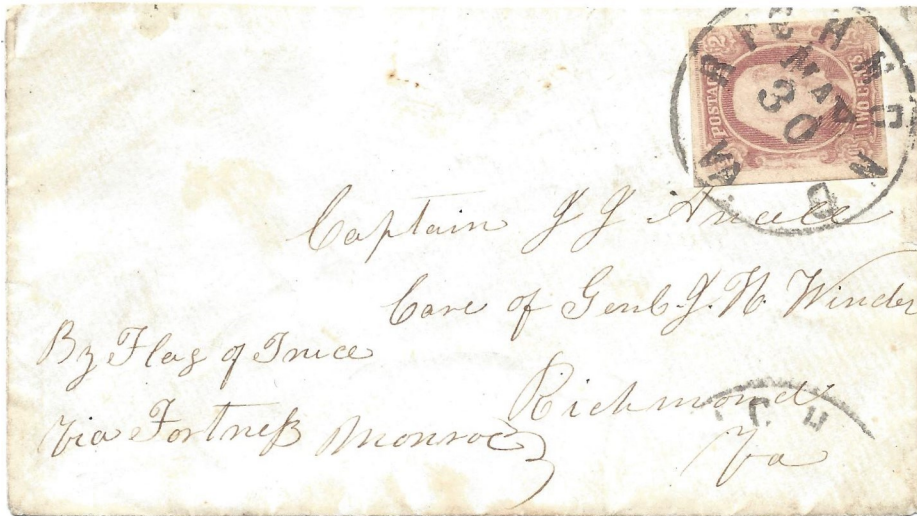 RICHMOND VA.
MAR
30
POSTAGE
TWO CENTS
Captain J J
Care of Genl J. H. Winder
By Flag of Truce
Via Fortress Monroe
Richmond
Va